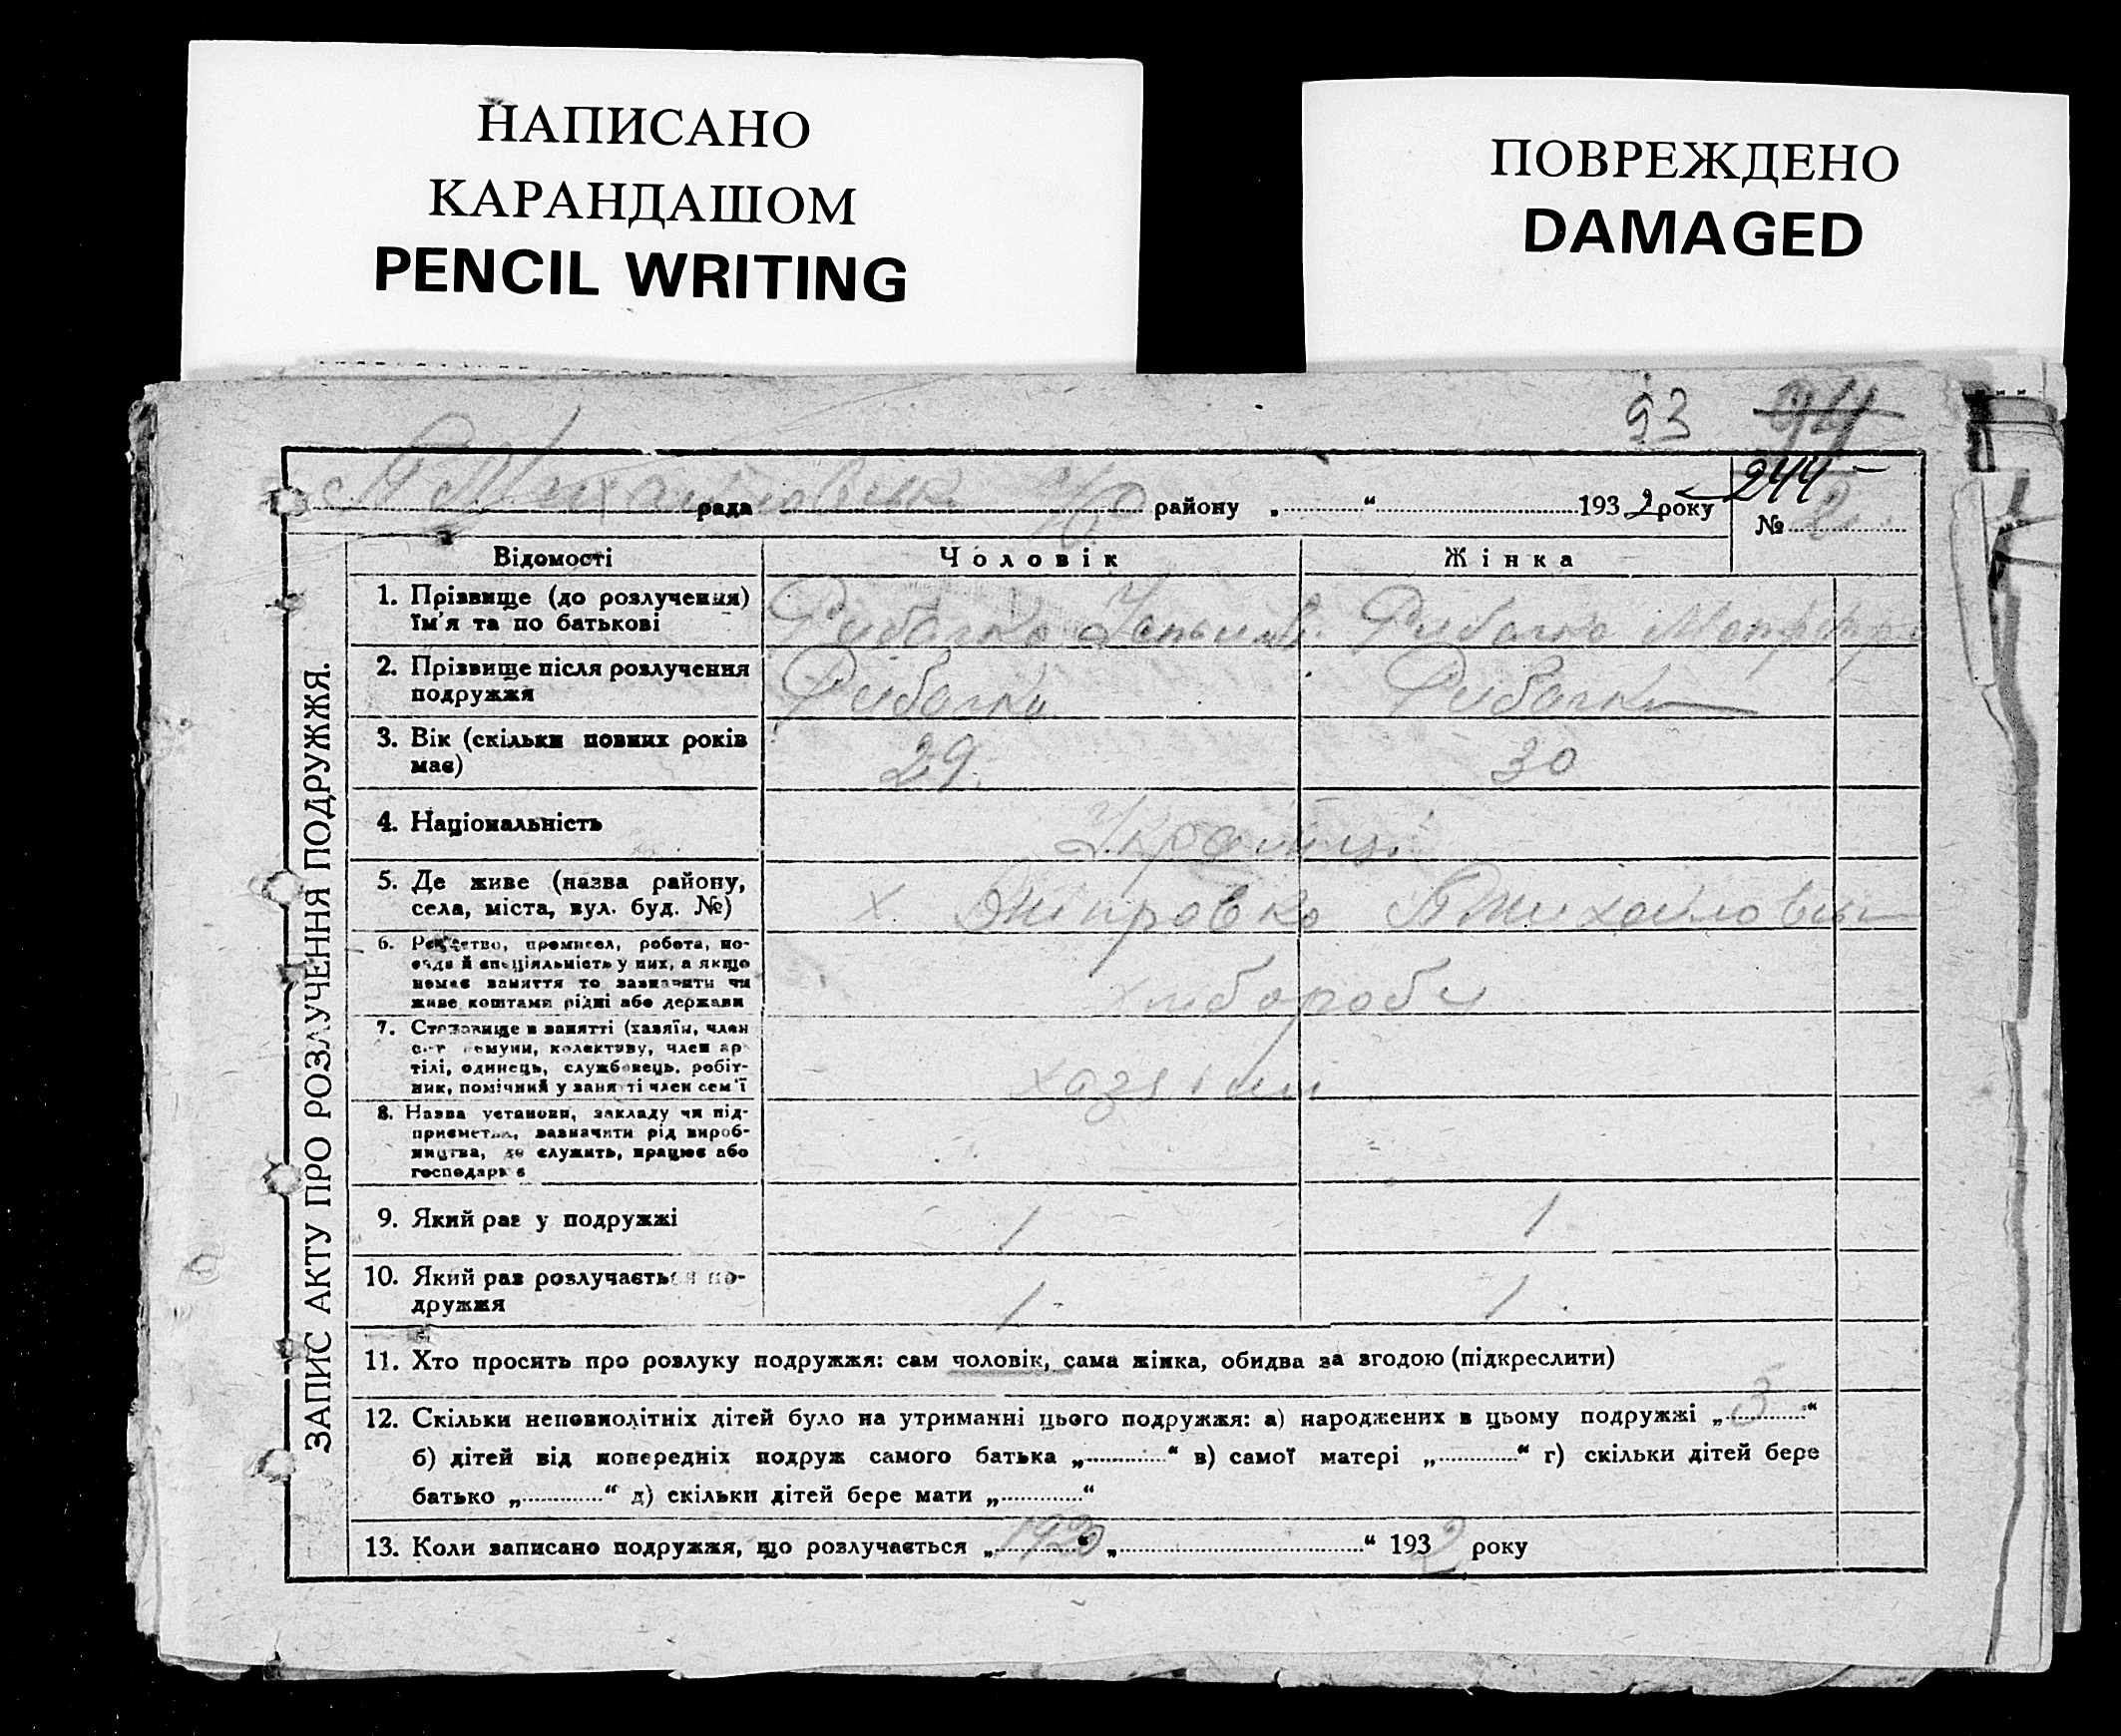 НАПИСАНО
КАРАНДАШОМ
PENCIL WRITING
ПОВРЕЖДЕНО
DAMAGED
93 94
244
рада району „ “ 1932 року № 2
ЗАПИС АКТУ ПРО РОЗЛУЧЕННЯ ПОДРУЖЖЯ.
Відомості Чоловік Жінка
1. Прізвище (до розлучення)
їм'я та по батькові
Рибалко Рибалко
2. Прізвище після розлучення
подружжя
Рибалко Рибалко
3. Вік (скільки повних років
має)
29 30
4. Національність
Українці
5. Де живе (назва району,
села, міста, вул. буд. №)
х. Дніпровка
6. Ремество, промисел, робота, по-
сада й спеціяльність у них, а якщо
немає заняття то зазначити чи
живе коштами рідні або держави
хлібороби
7. Становище в занятті (хазяїн, член
комуни, колективу, член ар-
тілі, одинець, службовець, робіт-
ник, помічний у занятті член сем'ї
хазяіни
8. Назва установи, закладу чи під-
приємства, зазначити рід вироб-
ництва, де служить, працює або
господарює
9. Який раз у подружжі 1 1
10. Який раз розлучається по-
дружжя
1 1
11. Хто просить про розлуку подружжя: сам чоловік, сама жінка, обидва за згодою (підкреслити)
12. Скільки неповнолітніх дітей було на утриманні цього подружжя: а) народжених в цьому подружжі „ 3 “
б) дітей від попередніх подруж самого батька „ “ в) самої матері „ “ г) скільки дітей бере
батько „ “ д) скільки дітей бере мати „ “
13. Коли записано подружжя, що розлучається „ 1920 “ „ “ 1932 року